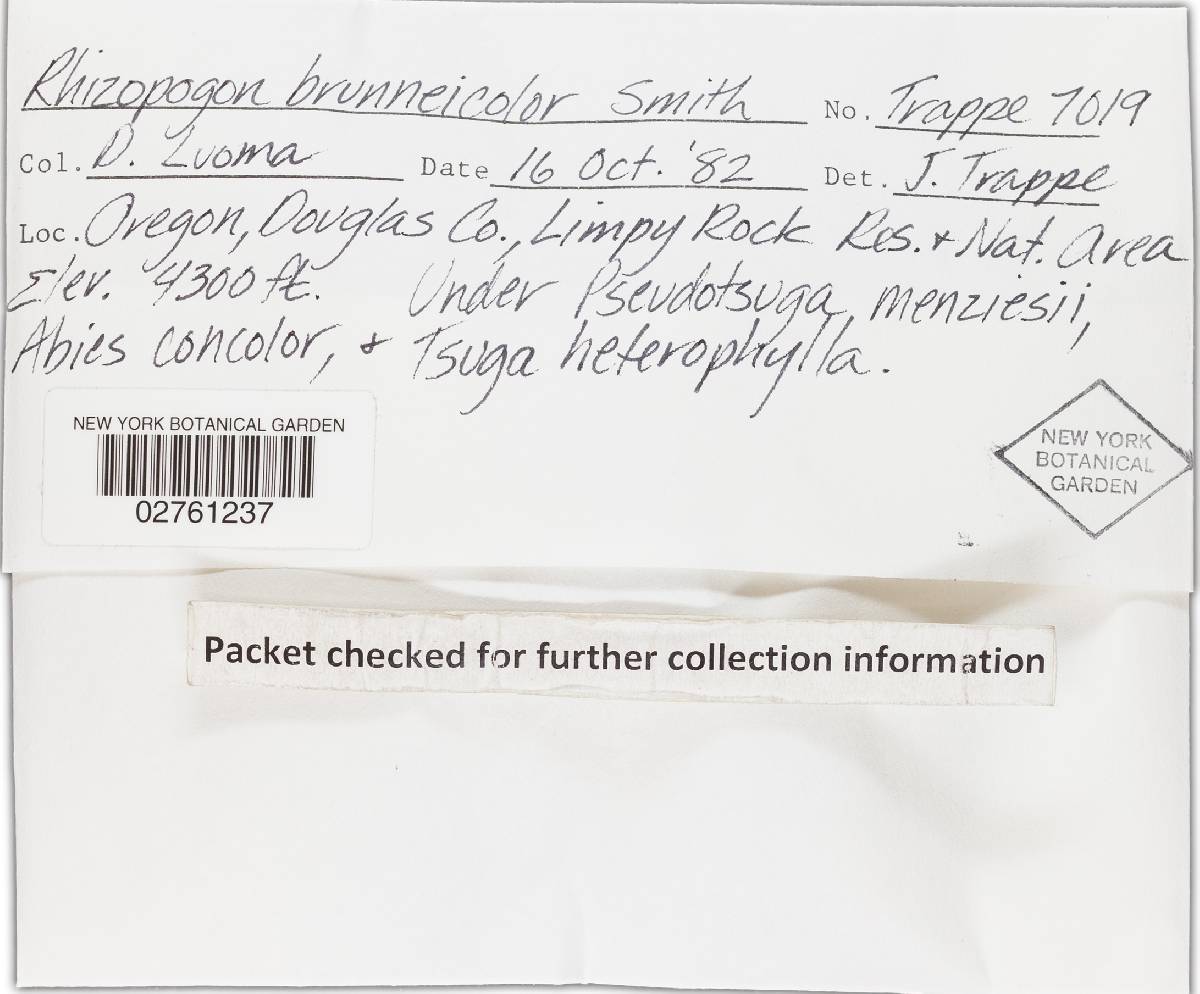 Rhizopogon brunneicolor Smith No. Trappe 7019
Col. D. Luoma Date 16 Oct. '82 Det. J. Trappe
Loc. Oregon, Douglas Co., Limpy Rock Res. & Nat. Area
Elev. 4300 ft. Under Pseudotsuga menziesii,
Abies concolor, & Tsuga heterophylla.
NEW YORK BOTANICAL GARDEN
02761237
NEW YORK
BOTANICAL
GARDEN
Packet checked for further collection information